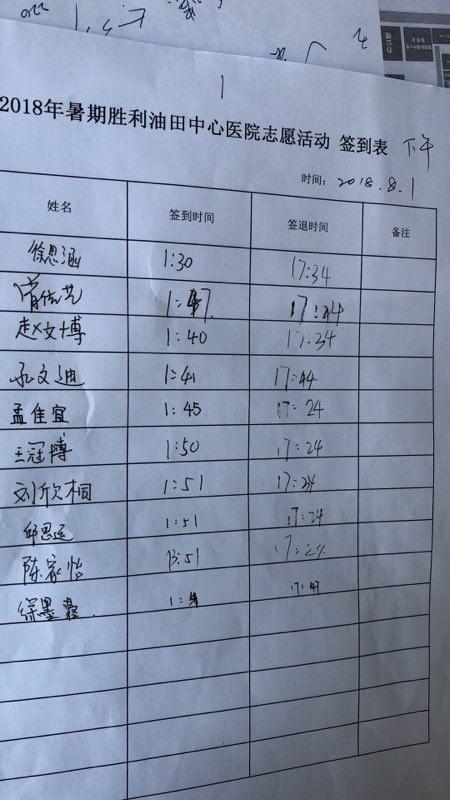 1
2018年暑期胜利油田中心医院志愿活动 签到表 下午
时间: 2018.8.1
姓名 签到时间 签退时间 备注
徐思涵 1:30 17:34
1:47 17:44
赵文博 1:40 17:34
文迪 1:41 17:44
孟佳宜 1:45 17:24
王冠博 1:50 17:24
刘欣桐 1:51 17:24
邱思远 1:51 17:24
陈家怡 13:51 17:24
徐墨 1: 17:47